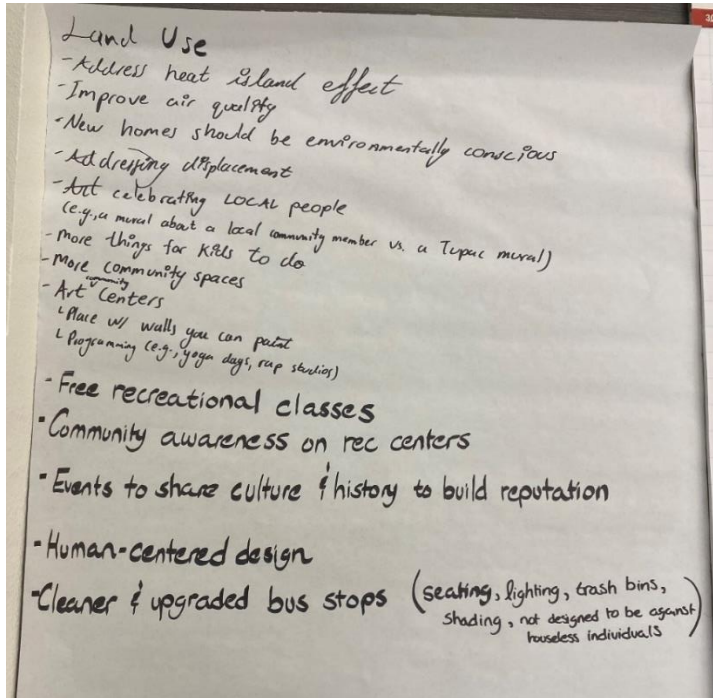 Land Use
-Address heat island effect
-Improve air quality
-New homes should be environmentally conscious
-Addressing displacement
-Art celebrating LOCAL people
(e.g., a mural about a local community member vs. a Tupac mural)
-more things for kids to do
-More community spaces
-Art community centers
└Place w/ walls you can paint
└Programming (e.g., yoga days, rap studios)
-Free recreational classes
-Community awareness on rec centers
-Events to share culture & history to build reputation
-Human-centered design
-Cleaner & upgraded bus stops (seating, lighting, trash bins,
shading, not designed to be against
houseless individuals)